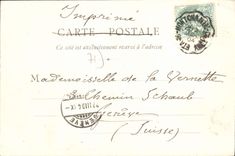 Imprimé
CARTE POSTALE
Ce côté est exclusivement réservé à l'adresse
Mademoiselle de la Vernette
Chemin Schaub
Genève
(Suisse)
GENÈVE